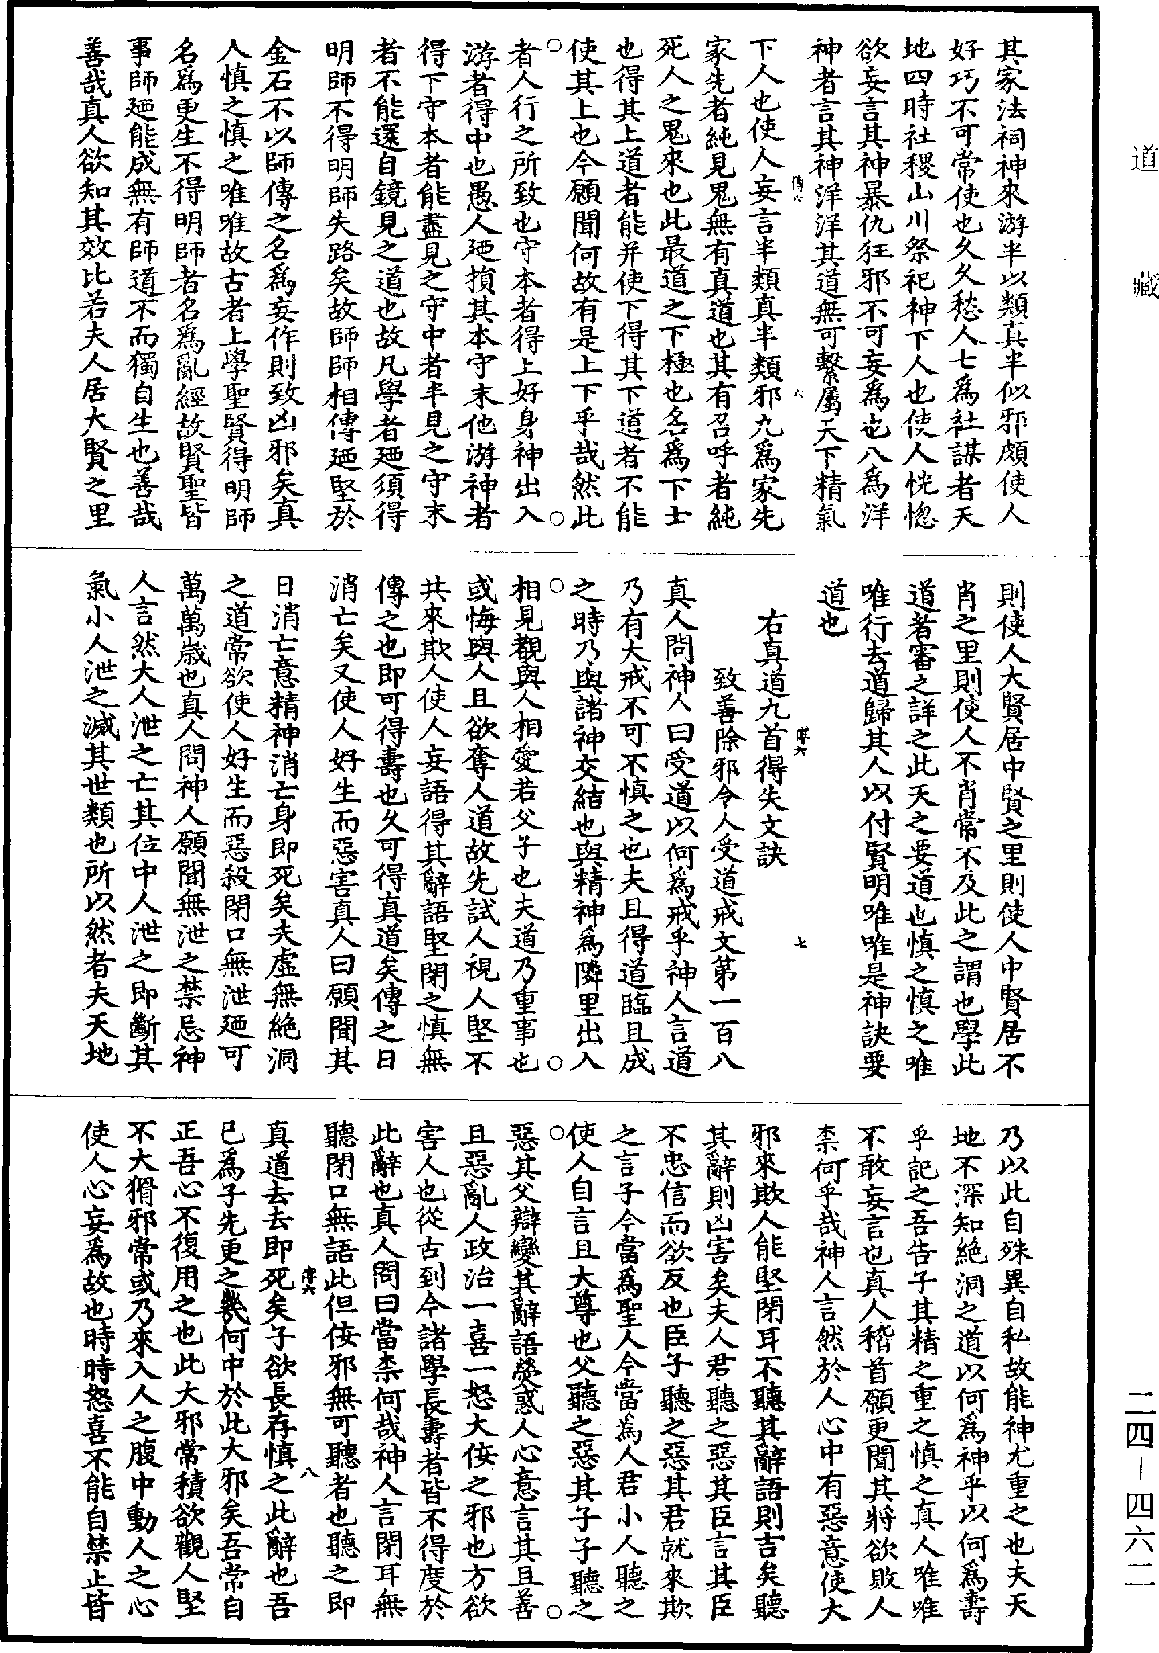 道藏
其家法祠神來游半以類真半似邪頗使人
好巧不可常使也久久愁人七爲社謀者天
地四時社稷山川祭祀神下人也使人恍惚
欲妄言其神暴仇狂邪不可妄爲也八爲洋
神者言其神洋洋其道無可繫屬天下精氣
下人也使人妄言半類真半類邪九爲家先
家先者純見鬼無有真道也其有召呼者純
死人之鬼來也此最道之下極也名爲下士
也得其上道者能并使下得其下道者不能
使其上也今願聞何故有是上下乎哉然此
者人行之所致也守本者得上好身神出入
游者得中也愚人廼損其本守末他游神者
得下守本者能盡見之守中者半見之守末
者不能還自鏡見之道也故凡學者廼須得
明師不得明師失路矣故師師相傳廼堅於
金石不以師傳之名爲妄作則致凶邪矣真
人慎之慎之唯唯故古者上學聖賢得明師
名爲更生不得明師者名爲亂經故賢聖皆
事師廼能成無有師道不而獨自生也善哉
善哉真人欲知其效比若夫人居大賢之里
則使人大賢居中賢之里則使人中賢居不
肖之里則使人不肖常不及此之謂也學此
道者審之詳之此天之要道也慎之慎之唯
唯行去道歸其人以付賢明唯唯是神訣要
道也
右真道九首得失文訣
致善除邪令人受道戒文第一百八
真人問神人曰受道以何爲戒乎神人言道
乃有大戒不可不慎之也夫且得道臨且成
之時乃與諸神交結也與精神爲隣里出入
相見觀與人相愛若父子也夫道乃重事也
或悔與人且欲奪人道故先試人視人堅不
共來欺人使人妄語得其辭語堅閉之慎無
傳之也即可得壽也久可得真道矣傳之日
消亡矣又使人好生而惡害真人曰願聞其
日消亡意精神消亡身即死矣夫虛無絶洞
之道常欲使人好生而惡殺閉口無泄廼可
萬萬歲也真人問神人願聞無泄之禁忌神
人言然大人泄之亡其位中人泄之即斷其
氣小人泄之滅其世類也所以然者夫天地
乃以此自殊異自私故能神尤重之也夫天
地不深知絶洞之道以何爲神乎以何爲壽
乎記之吾告子其精之重之慎之真人唯唯
不敢妄言也真人稽首願更聞其將欲敗人
柰何乎哉神人言然於人心中有惡意使大
邪來欺人能堅閉耳不聽其辭語則吉矣聽
其辭則凶害矣夫人君聽之惡其臣言其臣
不忠信而欲反也臣子聽之惡其君就來欺
之言子今當爲聖人今當爲人君小人聽之
使人自言且大尊也父聽之惡其子子聽之
惡其父辯變其辭語熒惑人心意言其且善
且惡亂人政治一喜一怒大佞之邪也方欲
害人也從古到今諸學長壽者皆不得度於
此辭也真人問曰當柰何哉神人言閉耳無
聽閉口無語此但佞邪無可聽者也聽之即
真道去去即死矣子欲長存慎之此辭也吾
已爲子先更之幾何中於此大邪矣吾常自
正吾心不復用之也此大邪常積欲觀人堅
不大猾邪常或乃來入人之腹中動人之心
使人心妄爲故也時時怒喜不能自禁止皆
二四－四六二